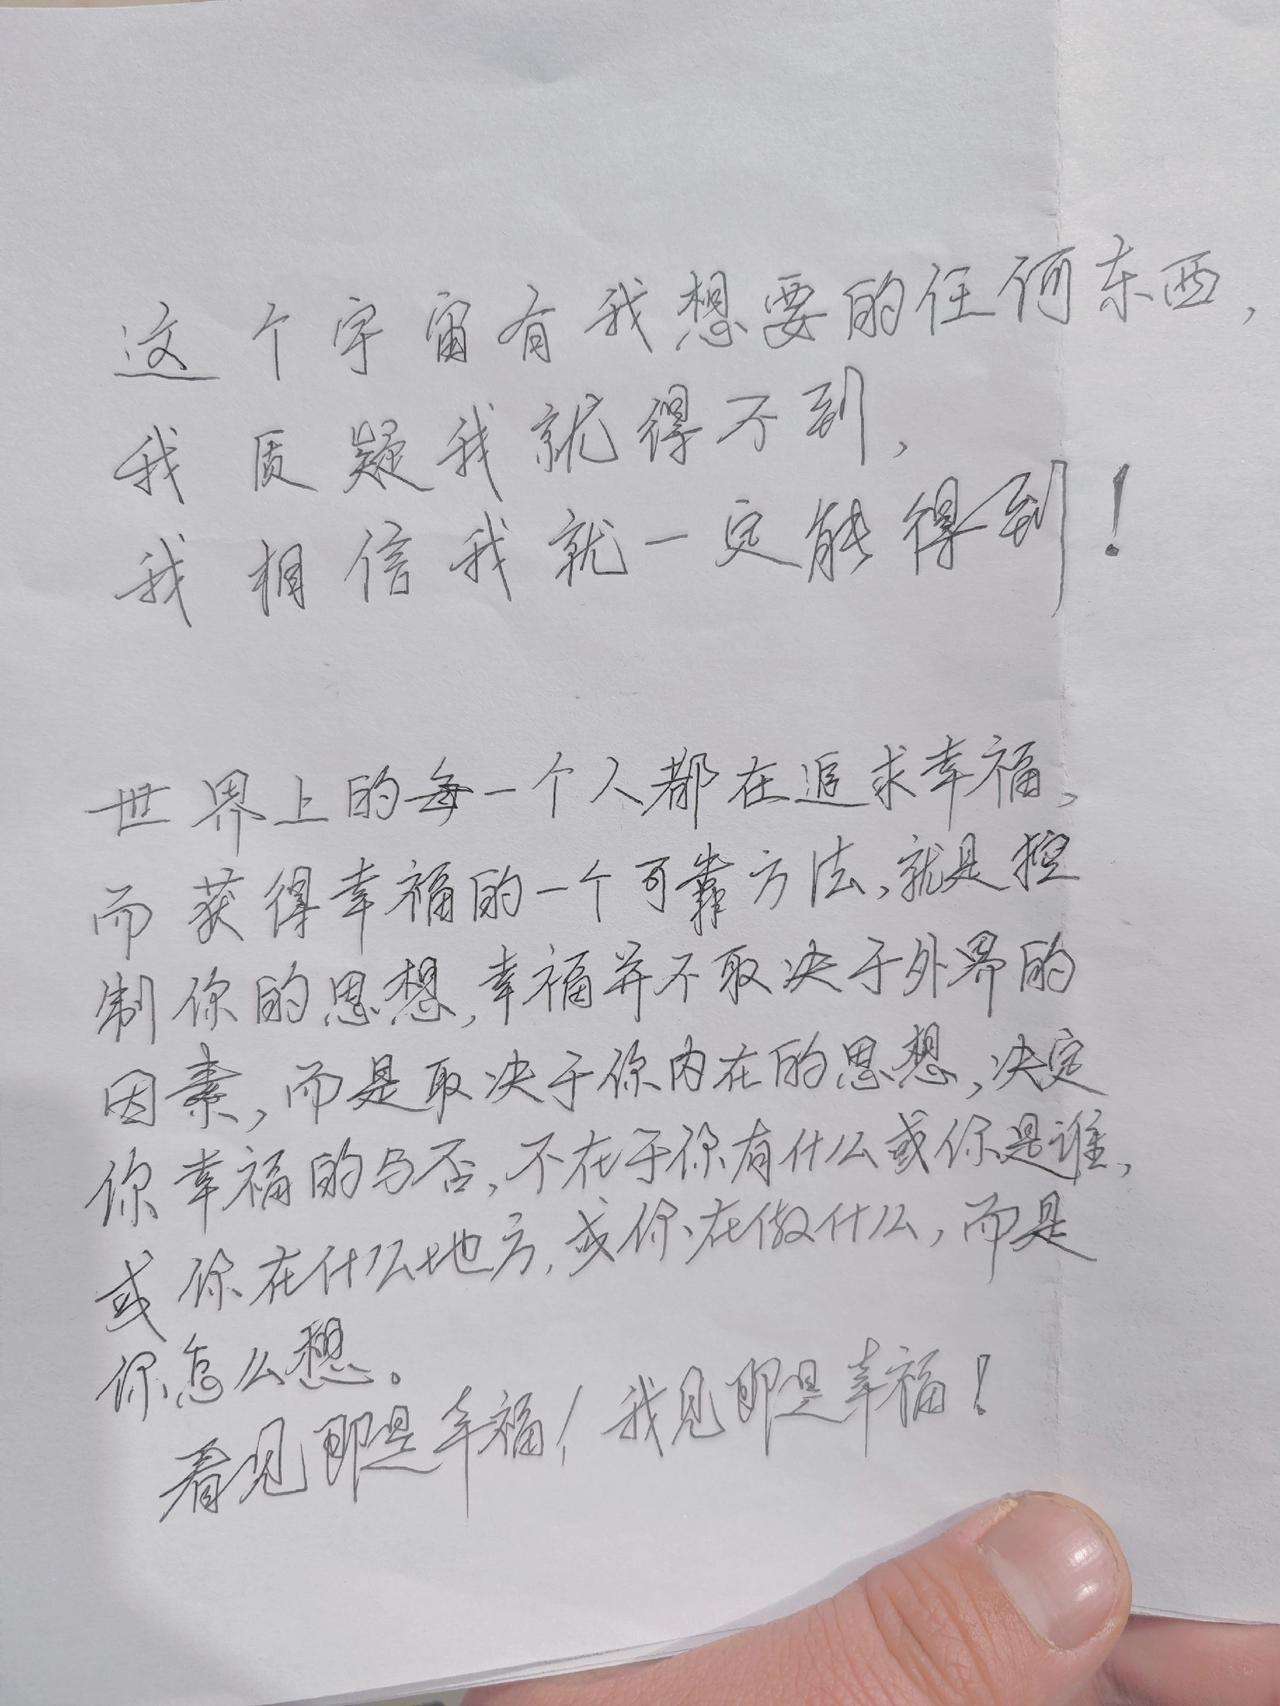 这个宇宙有我想要的任何东西，
我质疑我就得不到，
我相信我就一定能得到！
世界上的每一个人都在追求幸福，
而获得幸福的一个可靠方法，就是控
制你的思想，幸福并不取决于外界的
因素，而是取决于你内在的思想，决定
你幸福的与否，不在于你有什么或你是谁，
或你在什么地方，或你在做什么，而是
你怎么想。
看见即是幸福！我见即是幸福！